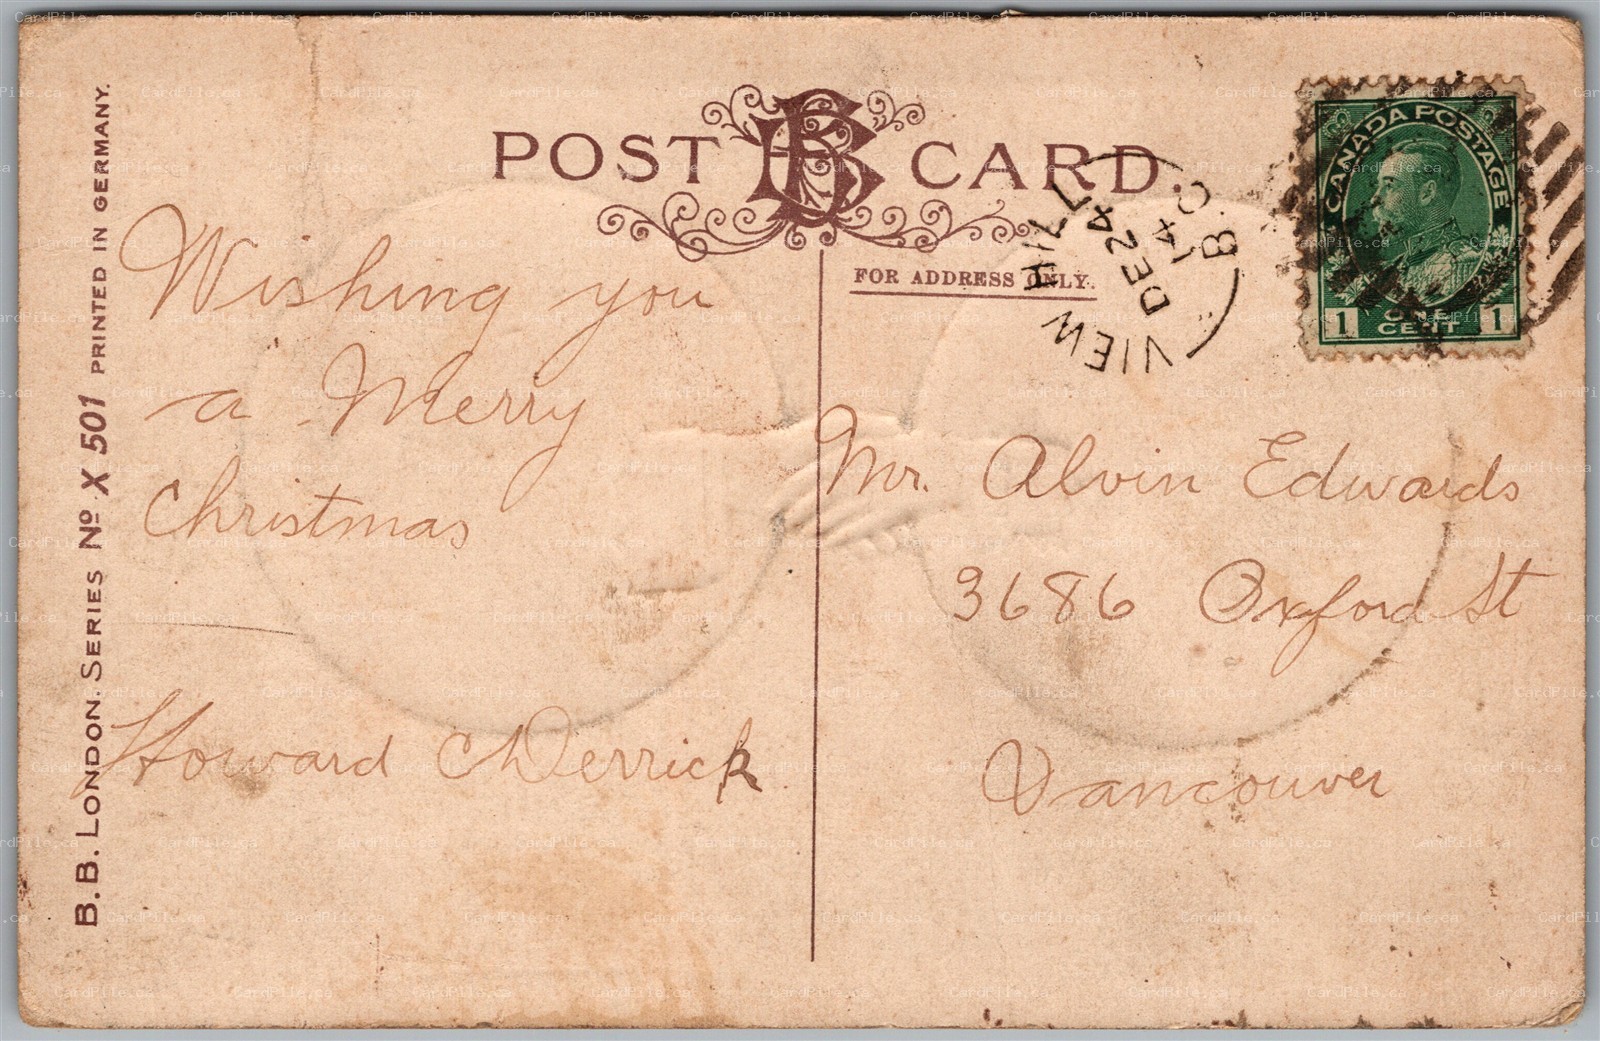 POST CARD.
FOR ADDRESS ONLY.
B.B. LONDON. SERIES Nº X 501 PRINTED IN GERMANY.
VIEW HILL
DE 24
14
B.C.
CANADA POSTAGE
1 ONE CENT 1
Wishing you
a Merry
Christmas
Howard Derrick
Mr. Alvin Edwards
3686 Oxford St
Vancouver
CardPile.ca